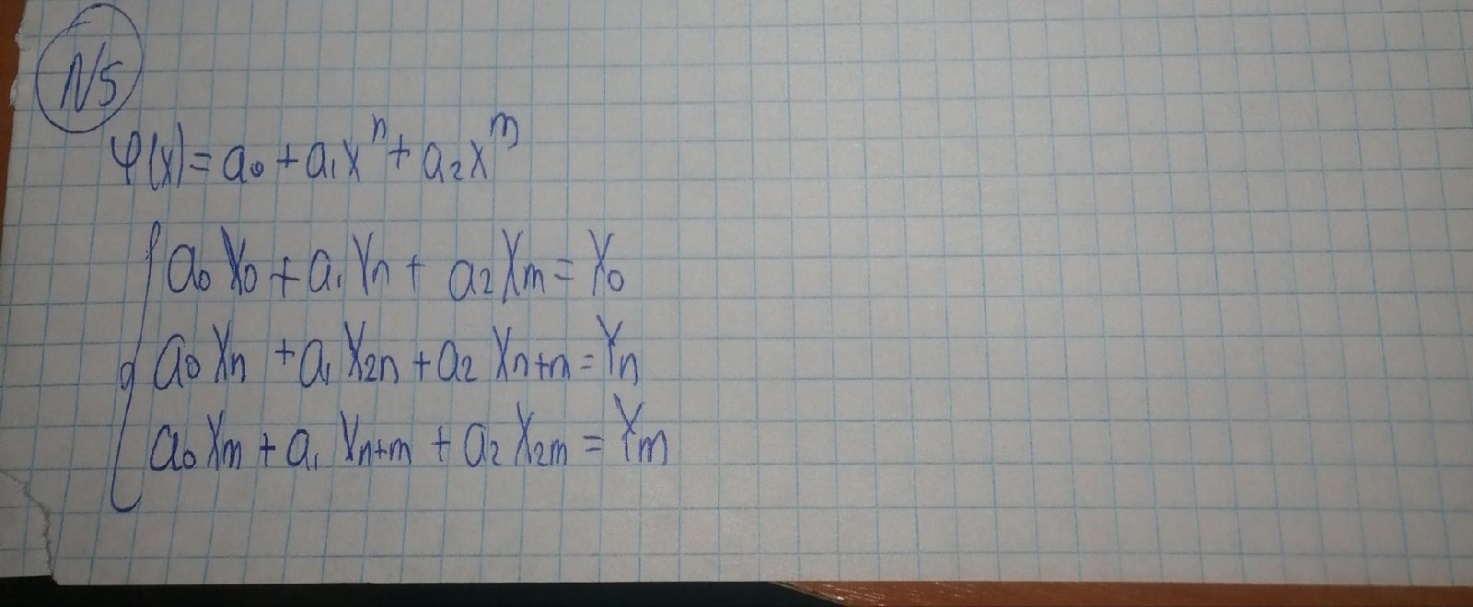 N5
φ(x) = a₀ + a₁xⁿ + a₂xᵐ
a₀ X₀ + a₁ Xₙ + a₂ Xₘ = Y₀
a₀ Xₙ + a₁ X₂ₙ + a₂ Xₙ₊ₙ = Yₙ
a₀ Xₘ + a₁ Xₙ₊ₘ + a₂ X₂ₘ = Yₘ